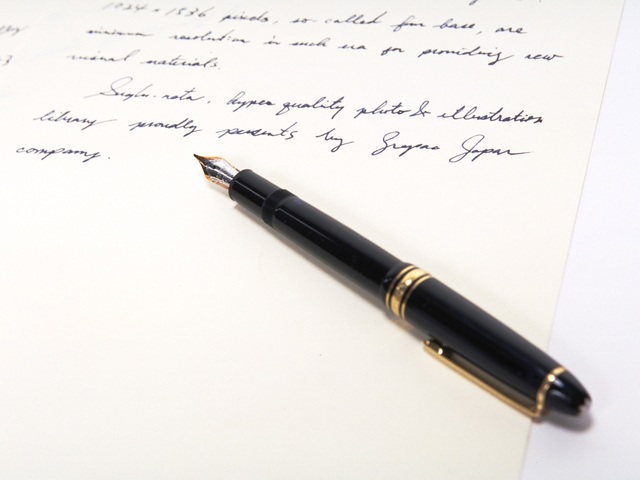 1024 × 1536 pixels, so-called four base, are
minimum resolution in such era for providing new
sional materials.
hyper quality photo & illustration
library proudly presents by Japan
company.